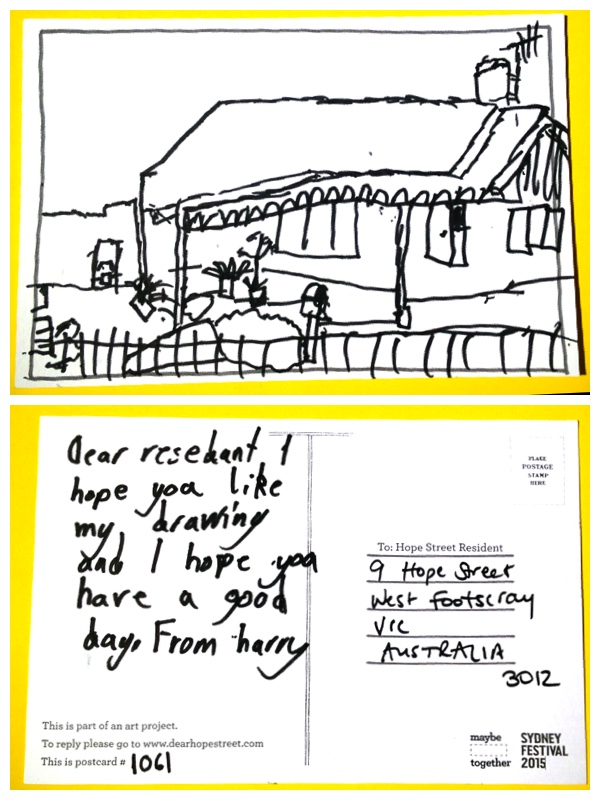 Dear resedant I
hope yoa like
my drawing
and I hope yoa
have a good
day. From harry
PLACE
POSTAGE
STAMP
HERE
To: Hope Street Resident
9 Hope Street
West Footscray
VIC
AUSTRALIA
3012
This is part of an art project.
To reply please go to www.dearhopestreet.com
This is postcard # 1061
maybe
together
SYDNEY
FESTIVAL
2015